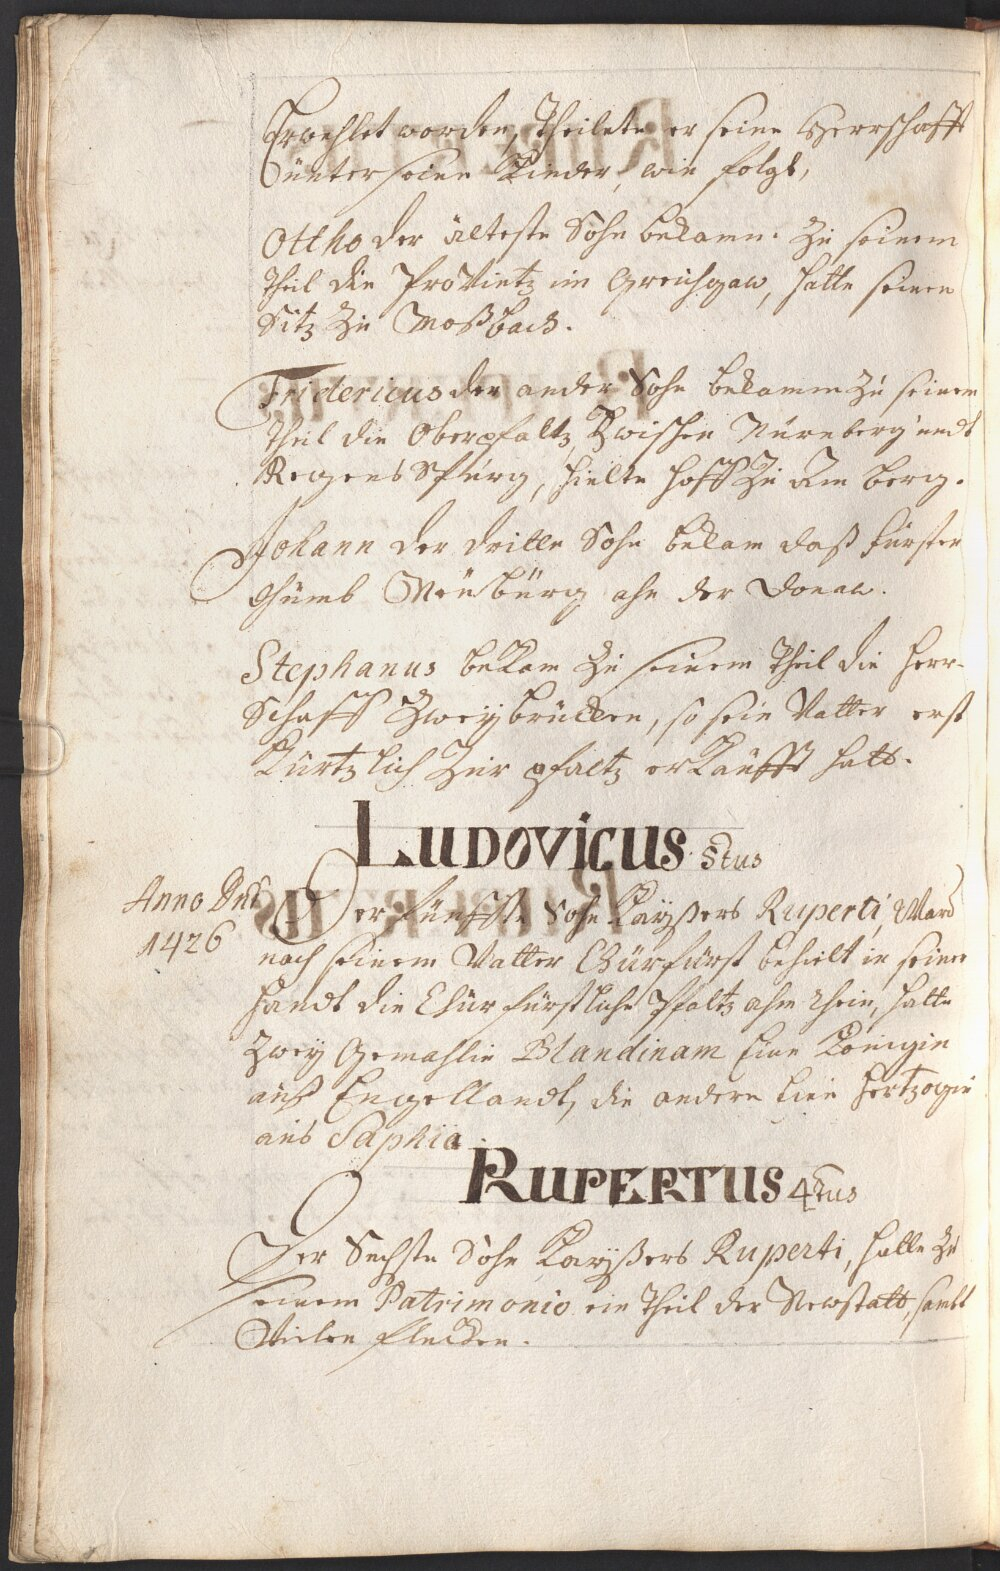 Erwehlet worden, Theilete er seine Herrschafft
unter seine Kinder, wie folgt,
Ottho der älteste Sohn bekamm zu seinem
Theil die Provintz im Greichgaw, hatte seinen
Sitz zu Moßbach.
Fridericus der ander Sohn bekamm zu seinem
Theil die Oberpfaltz Zwischen Nürnberg undt
Regens Spurg, hielte Hoff zu Am berg.
Johann der dritte Sohn bekam daß Fürsten
thumb Neuburg ahn der Donaw.
Stephanus bekam zu seinem Theil die Herr-
Schafft Zweybrücken, so sein Vatter erst
Kürtzlich Zur pfaltz erkaufft hatt.
LUDOVICUS 5tus
Anno Dni
1426
Der fünffte Sohn Kayßers Ruperti, Ward
nach seinem Vatter Churfürst behielt in seiner
Handt die Churfürstliche Pfaltz ahm Rhein, hatte
Zwey Gemahlin Blandinam Eine Königin
auß Engellandt, die andere Eine Hertzogin
aus Saphia.
RUPERTUS 4tus
Der Sechste Sohn Kayßers Ruperti, hatte zu
seinem Patrimonio ein Theil der Newstatt, sambt
Vielen Flecken.